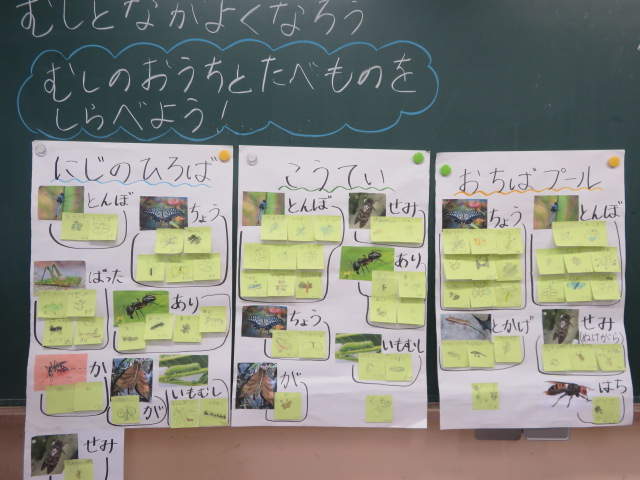 むしとなかよくなろう
むしのおうちとたべものを
しらべよう!
にじのひろば
とんぼ
ちょう
ばった
あり
か
が
いもむし
せみ
こうてい
とんぼ
せみ
あり
ちょう
いもむし
が
おちばプール
ちょう
とんぼ
とかげ
せみ
(ぬけがら)
はち